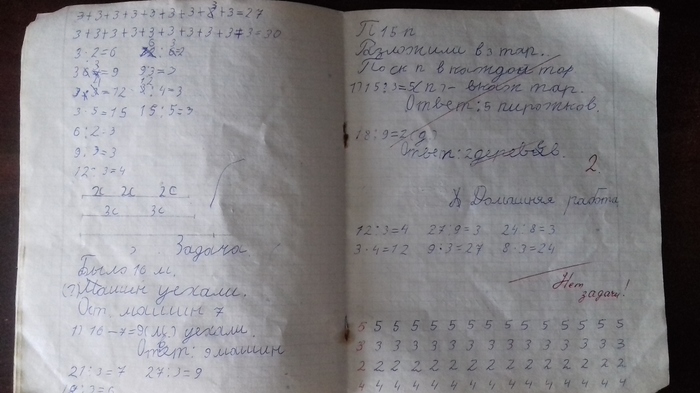 3+3+3+3+3+3+3+3+3=27
3+3+3+3+3+3+3+3+3+3=30
3·2=6 :6=2
=9 9:3=3
=12 :4=3
3·5=15 15:5=3
6:2=3
9:3=3
12:3=4
2с 2с 2с
3с 3с
Задача
Было 16 м.
(?) Машин уехали.
Ост. машин 7
1) 16-7=9(м.) уехали.
Ответ: 9 машин
21:3=7 27:3=9
18:3=6
П 15 п
Разложили в 3 тар.
По ск п в каждой тар
1) 15:3=5(п)- в каж тар.
Ответ: 5 пирожков.
18:9=2(д)
Ответ: 2 деревьев.
2.
Домашняя работа
12:3=4 27:9=3 24:8=3
3·4=12 9·3=27 8·3=24
Нет
задачи!
5 5 5 5 5 5 5 5 5 5 5 5 5 5 5
3 3 3 3 3 3 3 3 3 3 3 3 3 3 3
2 2 2 2 2 2 2 2 2 2 2 2 2 2 2
4 4 4 4 4 4 4 4 4 4 4 4 4 4 4